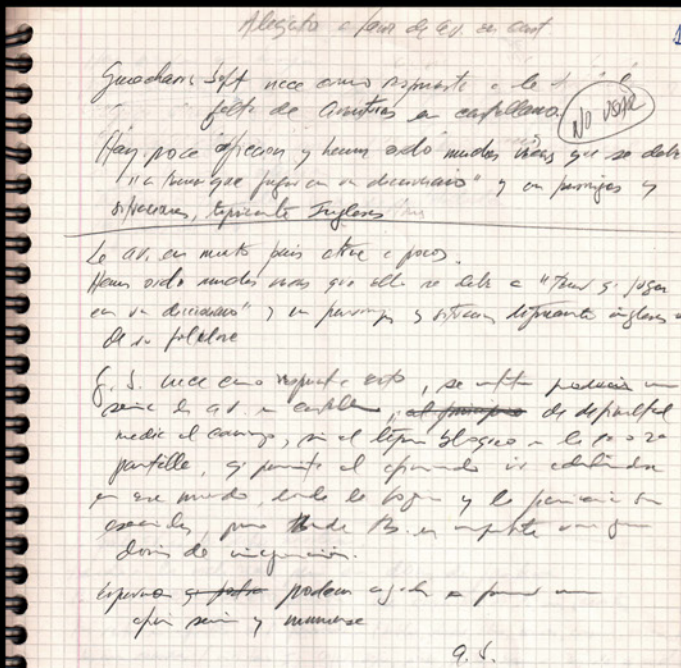 Alegato a favor de av. en cast.
1
Guachara Soft nace como respuesta a la
falta de aventuras en castellano.
No usar
Hay poca afición y hemos oído muchas veces que se debe
"a tener que jugar con un diccionario" y con personajes y
situaciones, típicamente Inglesas
La av. en nuestro país atrae a pocos.
Hemos oído muchas veces que ello se debe a "tener q jugar
con un diccionario" y con personajes y situaciones típicamente inglesas
de su folclore
G. S. nace como respuesta a esto, se producir una
serie de av. en castellano, al principio de dificultad
media el camino, sin el bloqueo a la 1ª o 2ª
pantalla, q permita al ir
en ese mundo, donde la lógica y la paciencia son
esenciales, pero es importante una gran
dosis de imaginación.
Esperamos podamos ayudar a formar una
afición seria y numerosa
G. S.